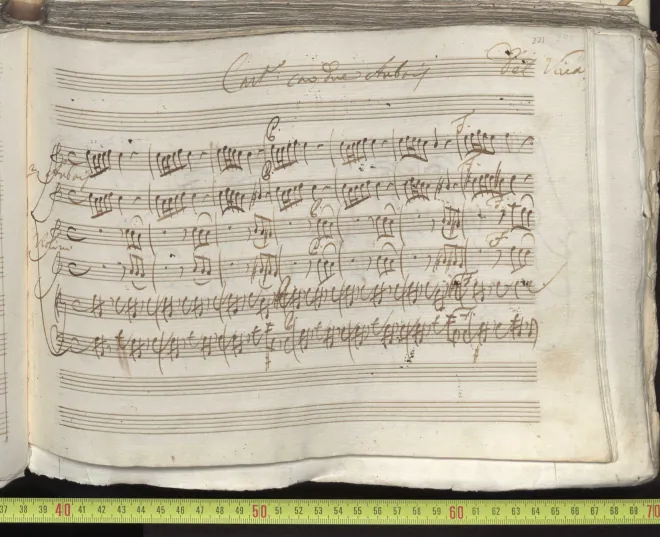 221
Con.to con due Aubois Del Viva
P. F.
2 Aubois
P.
P. F.
Violini
P. F.
37 38 39 40 41 42 43 44 45 46 47 48 49 50 51 52 53 54 55 56 57 58 59 60 61 62 63 64 65 66 67 68 69 70